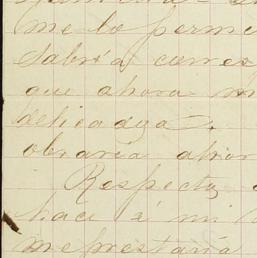 me lo perm
Sabrá corres
que ahora m
delicadeza.
obraria ahor
Respecto
hace á mi
me prestaria